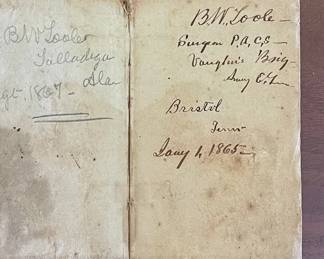 B.W. Toole
Talladega
Ala
1867
B.W. Toole
Surgeon P.A.C.S
Vaughn's Brig
Army C.S.
Bristol
Tenn
Jany 1, 1865